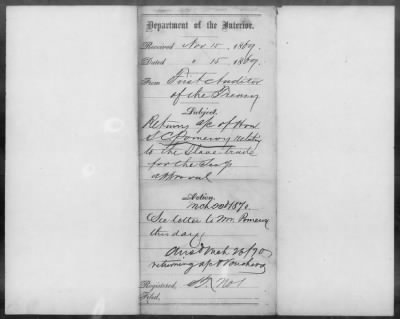 Department of the Interior.
Received Nov 15, 1869.
Dated " 15, 1869.
From First Auditor
of the Treasury
Subject.
Returns a/c of Hon
S C Pomeroy relating
to the Slave trade
for the Secy's
approval
Action.
Mch 1870.
See letter to Mr. Pomeroy
this day.
Ansd Mch 26/70
returning a/c & Vouchers
Registered,
Filed,